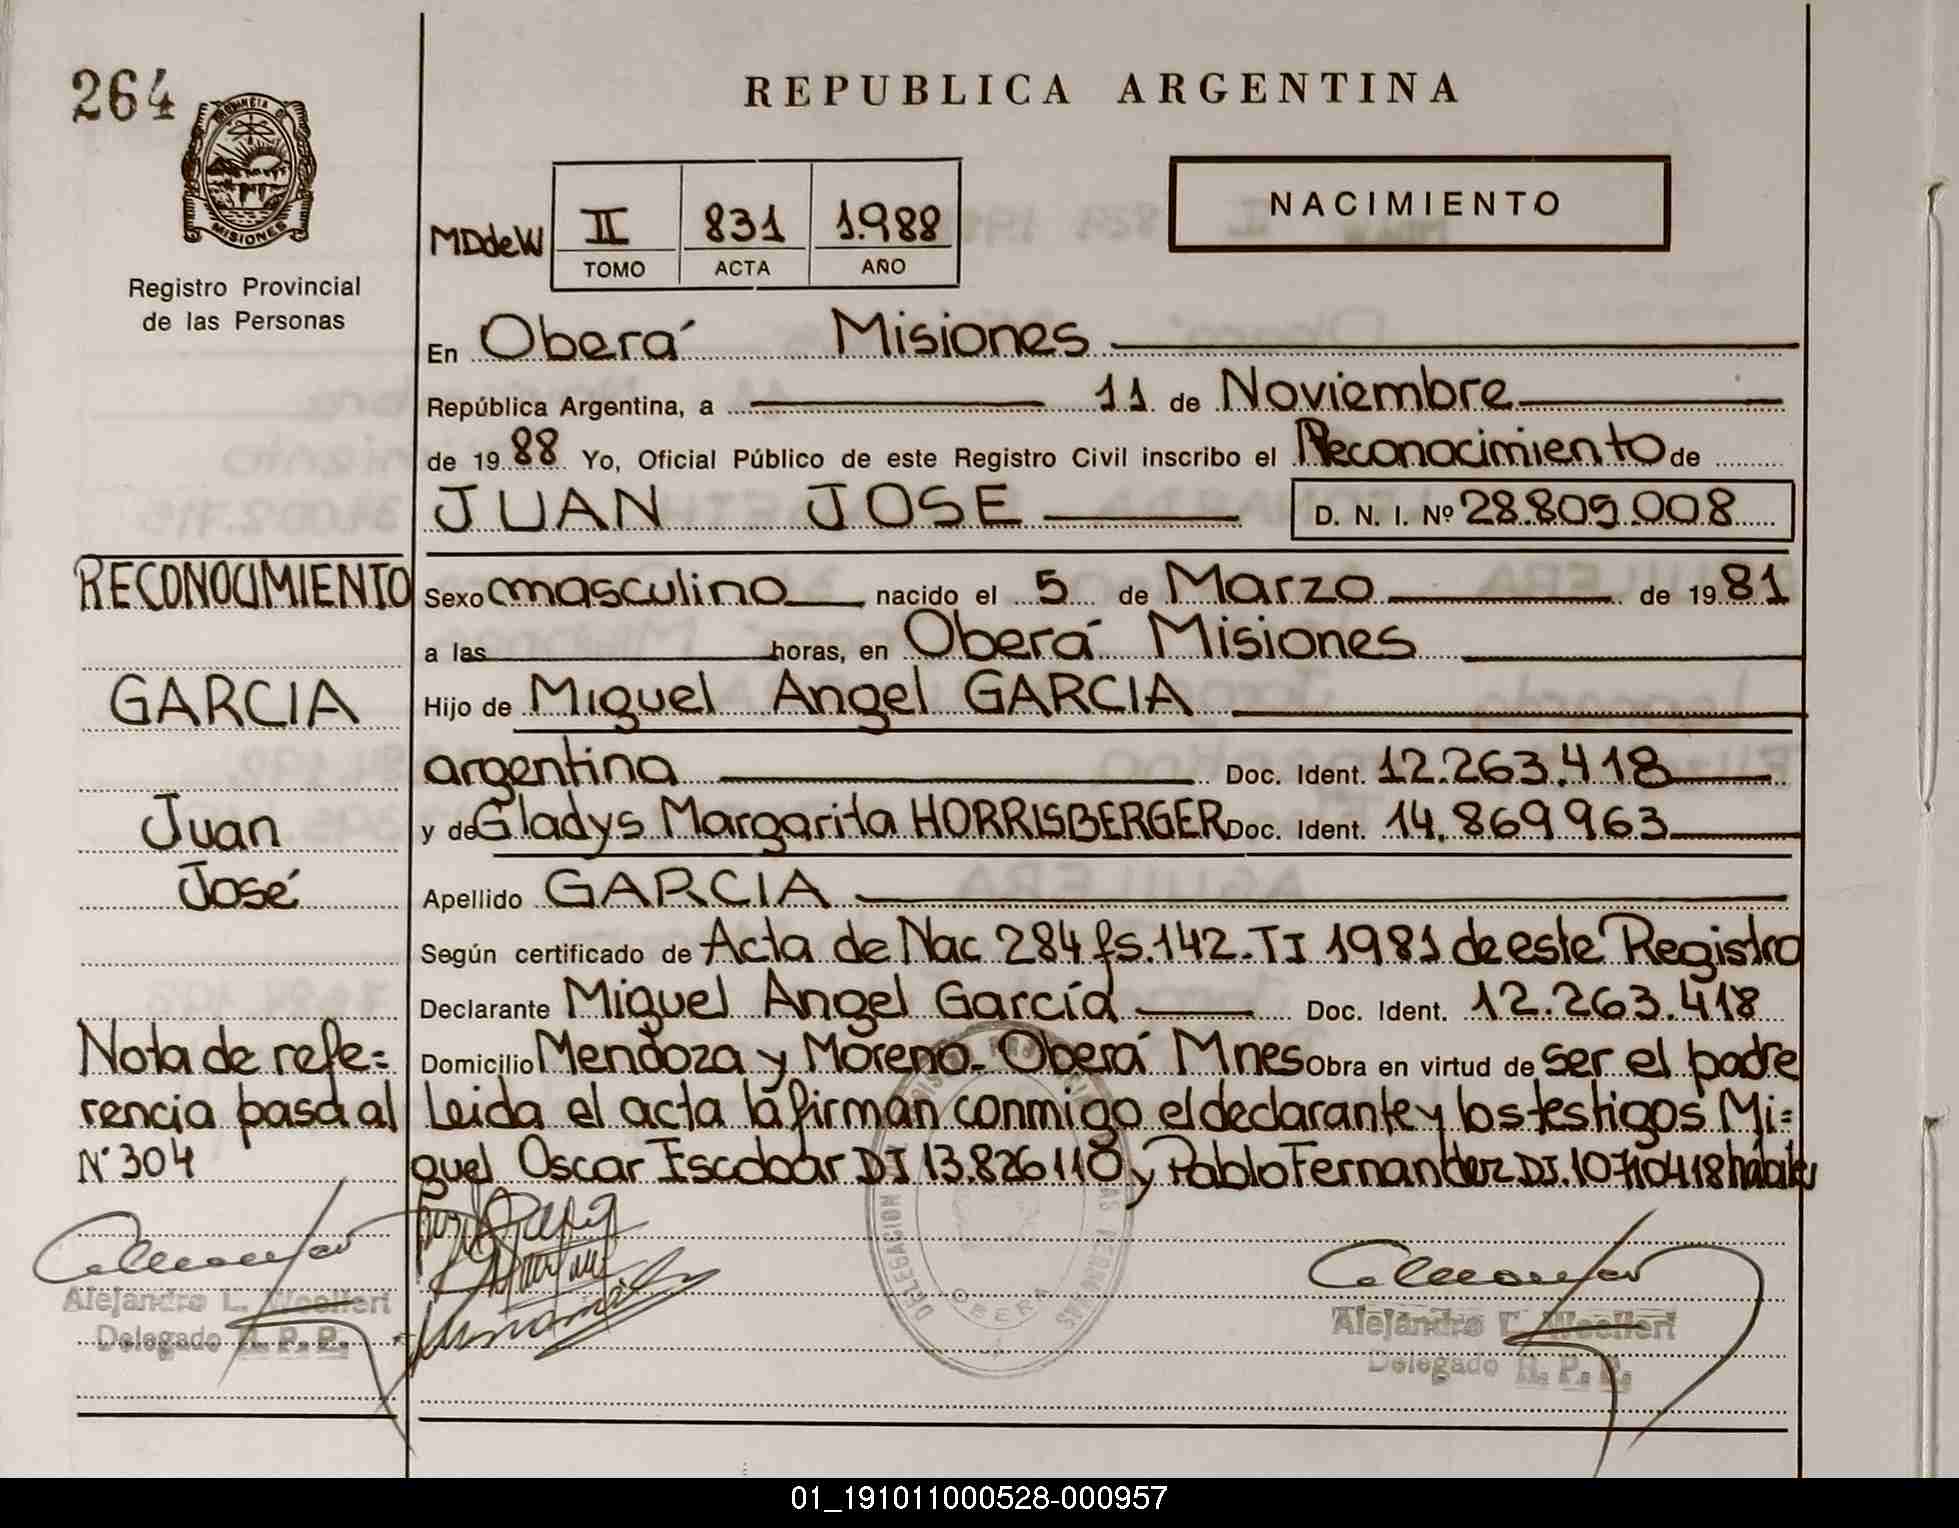 264
PROVINCIA DE
MISIONES
Registro Provincial
de las Personas
REPUBLICA ARGENTINA
MDdeW II 831 1.988
TOMO ACTA AÑO
NACIMIENTO
En Oberá Misiones
República Argentina, a 11 de Noviembre
de 1988 Yo, Oficial Público de este Registro Civil inscribo el Reconocimiento de
JUAN JOSE D. N. I. Nº 28.809.008
RECONOCIMIENTO
GARCIA
Juan
José
Nota de refe=
rencia pasa al
N° 304
Alejandro L. Woelfert
Delegado R. P. P.
Sexo masculino nacido el 5 de Marzo de 1981
a las horas, en Oberá Misiones
Hijo de Miguel Angel GARCIA
argentina Doc. Ident. 12.263.418
y de Gladys Margarita HORRISBERGER Doc. Ident. 14.869963
Apellido GARCIA
Según certificado de Acta de Nac 284 fs.142.TI 1981 de este Registro
Declarante Miguel Angel García Doc. Ident. 12.263.418
Domicilio Mendoza y Moreno. Oberá Mnes Obra en virtud de ser el padre
Leida el acta la firman conmigo el declarante y los testigos Mi=
guel Oscar Escobar DI 13.826110 y Pablo Fernandez DI.10710418 habiles
DELEGACION OBERA
Alejandro L. Woelfert
Delegado R. P. P.
01_191011000528-000957